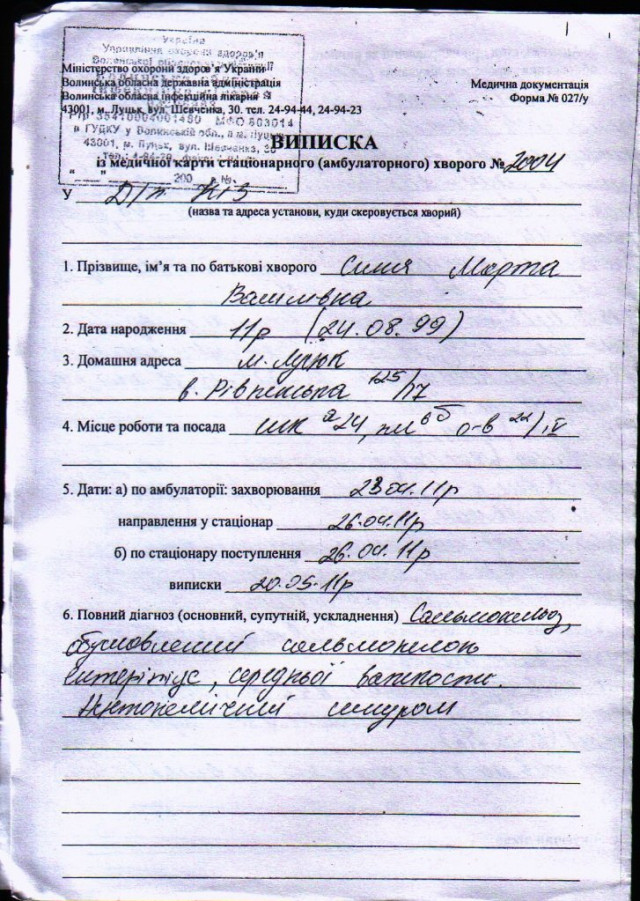 Україна
Управління охорони здоров'я
Міністерство охорони здоров'я України
Волинська обласна державна адміністрація
Волинська обласна інфекційна лікарня
43001, м. Луцьк, вул. Шевченка, 30. тел. 24-94-44, 24-94-23
Медична документація
Форма № 027/у
в ГУДКУ у Волинській обл., в м. Луцьк
43001, м. Луцьк, вул. Шевченка, 30
200 р. №
ВИПИСКА
із медичної карти стаціонарного (амбулаторного) хворого № 2004
У Д/п №3
(назва та адреса установи, куди скеровується хворий)
1. Прізвище, ім'я та по батькові хворого Синя Марта
2. Дата народження 11р (24.08.99)
3. Домашня адреса м. Луцьк
в. Рівненська 125/17
4. Місце роботи та посада шк 24,
5. Дати: а) по амбулаторії: захворювання 23.04.11р
направлення у стаціонар 26.04.11р
б) по стаціонару поступлення 26.04.11р
виписки 20.05.11р
6. Повний діагноз (основний, супутній, ускладнення) Сальмонельоз,
обумовлений сальмонелою
ентерітідіс, середньої важкості.
синдром